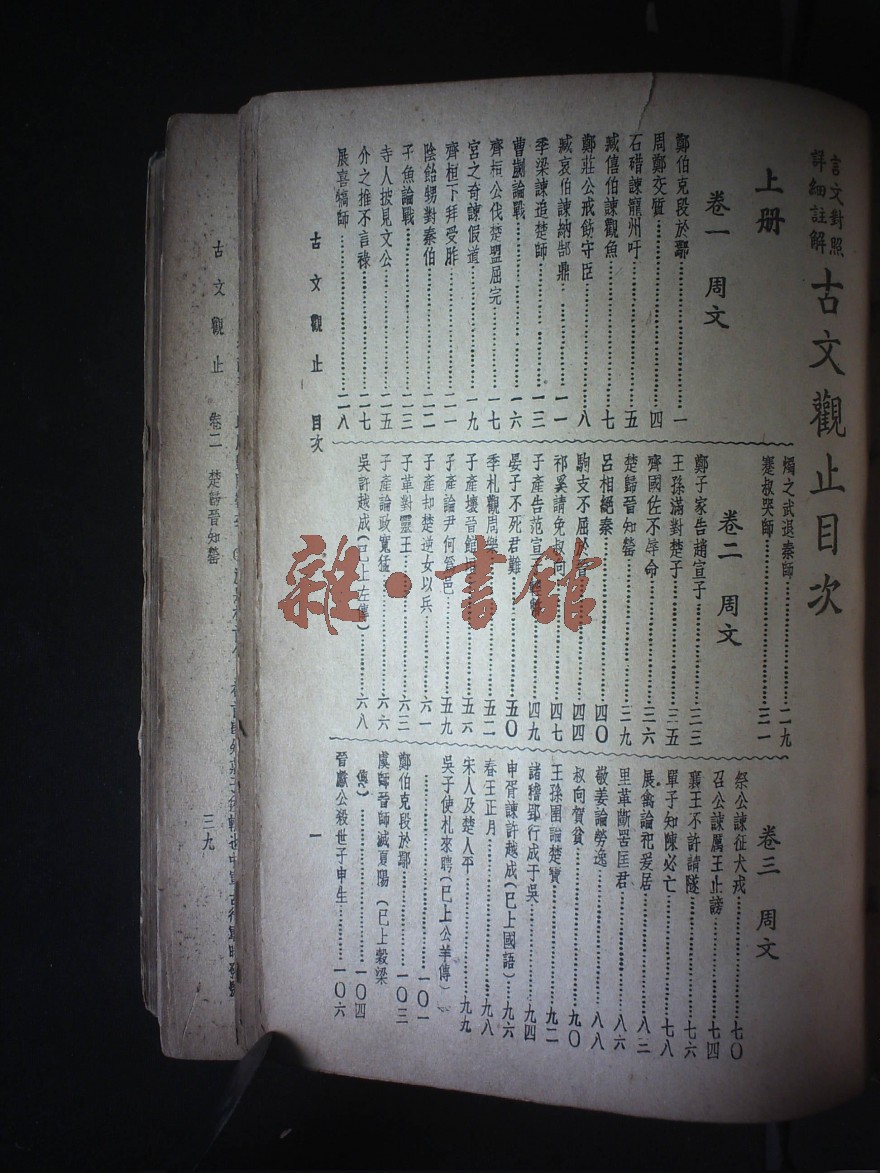 言文對照
詳細註解
古文觀止目次
上册
卷一 周文
鄭伯克段於鄢⋯⋯一
周鄭交質⋯⋯四
石碏諫寵州吁⋯⋯五
臧僖伯諫觀魚⋯⋯七
鄭莊公戒飭守臣⋯⋯八
臧哀伯諫納郜鼎⋯⋯一一
季梁諫追楚師⋯⋯一三
曹劌論戰⋯⋯一六
齊桓公伐楚盟屈完⋯⋯一七
宮之奇諫假道⋯⋯一九
齊桓下拜受胙⋯⋯二一
陰飴甥對秦伯⋯⋯二二
子魚論戰⋯⋯二三
寺人披見文公⋯⋯二五
介之推不言祿⋯⋯二七
展喜犒師⋯⋯二八
燭之武退秦師⋯⋯二九
蹇叔哭師⋯⋯三一
卷二 周文
鄭子家告趙宣子⋯⋯三三
王孫滿對楚子⋯⋯三五
齊國佐不辱命⋯⋯三六
楚歸晉知罃⋯⋯三九
呂相絕秦⋯⋯四〇
駒支不屈於晉⋯⋯四四
祁奚請免叔向⋯⋯四七
子產告范宣子⋯⋯四九
晏子不死君難⋯⋯五〇
季札觀周樂⋯⋯五二
子產壞晉館垣⋯⋯五六
子產論尹何為邑⋯⋯五九
子產却楚逆女以兵⋯⋯六一
子革對靈王⋯⋯六三
子產論政寬猛⋯⋯六六
吳許越成(已上左傳)⋯⋯六八
卷三 周文
祭公諫征犬戎⋯⋯七〇
召公諫厲王止謗⋯⋯七四
襄王不許請隧⋯⋯七六
單子知陳必亡⋯⋯七八
展禽論祀爰居⋯⋯八三
里革斷罟匡君⋯⋯八六
敬姜論勞逸⋯⋯八八
叔向賀貧⋯⋯九〇
王孫圉論楚寶⋯⋯九二
諸稽郢行成于吳⋯⋯九四
申胥諫許越成(已上國語)⋯⋯九六
春王正月⋯⋯九八
宋人及楚人平⋯⋯九九
吳子使札來聘(已上公羊傳)
⋯⋯一〇一
鄭伯克段於鄢⋯⋯一〇三
虞師晉師滅夏陽(已上穀梁
傳)⋯⋯一〇四
晉獻公殺世子申生⋯⋯一〇六
古文觀止 目次 一
古文觀止 卷二 楚歸晉知罃 三九
雜·書館